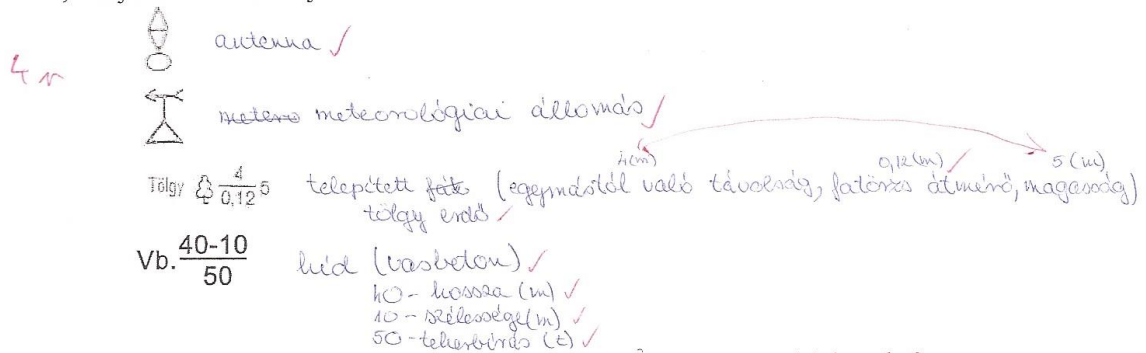 antenna ✓
4 
metero meteorológiai állomás ✓
4(m) 0,12(m) ✓ 5(m)
Tölgy 4/0,12 5 telepített (egymástól való távolság, fatörzs átmérő, magasság)
tölgy erdő ✓
Vb. 40-10/50 híd (vasbeton) ✓
40 - hossza (m) ✓
10 - szélessége (m) ✓
50 - teherbírás (t) ✓